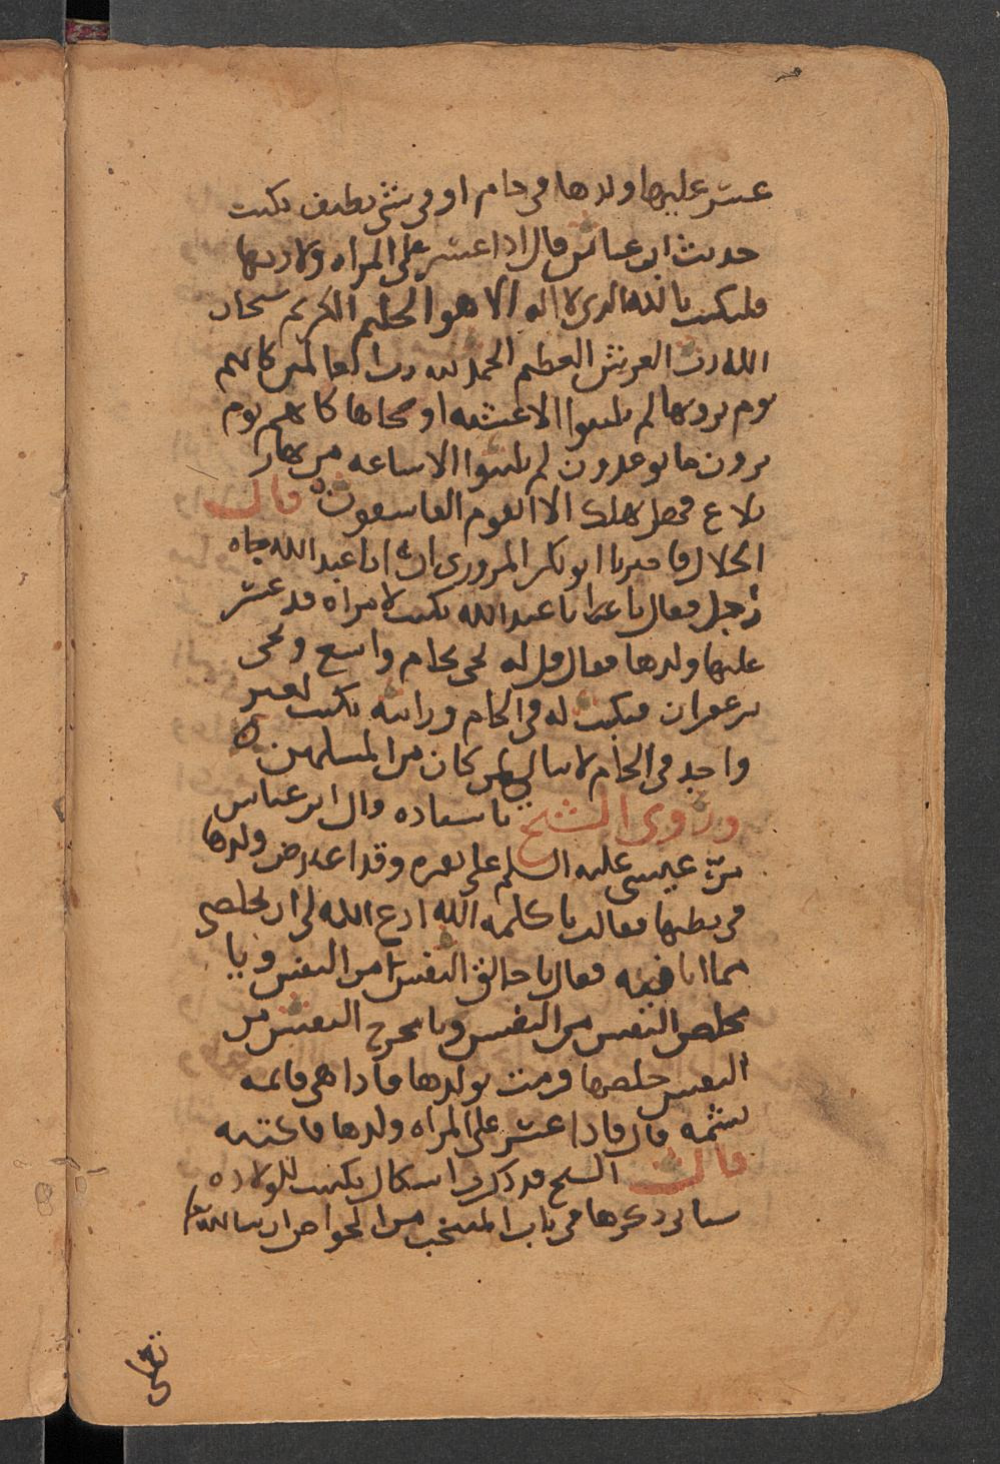 عسر عليها ولدها في جام او في شي نظيف يكتب
حديث ابن عباس قال اذا عسر على المراه ولادتها
فليكتب بالله الذي لا اله الا هو الحليم الكريم سبحان
الله رب العرش العظيم الحمد لله رب العالمين كانهم
يوم يرونها لم يلبثوا الا عشيه او ضحاها كانهم يوم
يرون ما يوعدون لم يلبثوا الا ساعه من نهار
بلاغ فهل يهلك الا القوم الفاسقون قال
الخلال فاخبرنا ابو بكر المروزي ان ابا عبد الله جاه
رجل فقال يا ابا عبد الله يكتب لامراه قد عسر
عليها ولدها فقال قل له يجي بجام واسع ويجي
بزعفران فيكتب له في الجام ورايته يكتب لغير
واحد في الجام لا يبالي لمن كان من المسلمين
وروى الشيخ باسناده قال ابن عباس
مر عيسى عليه السلم على بقره وقد اعترض ولدها
في بطنها فقالت يا كلمه الله ادع الله لي ان يخلصني
مما انا فيه فقال يا خالق النفس من النفس ويا
مخلص النفس من النفس ويا مخرج النفس من
النفس خلصها فرمت بولدها فاذا هي قائمه
تشمه قال فاذا عسر على المراه ولدها فاكتبه
قال الشيخ قد ذكر اشكال يكتب للولاده
سياتي ذكرها في باب المنتخب من الخواص ان شا الله